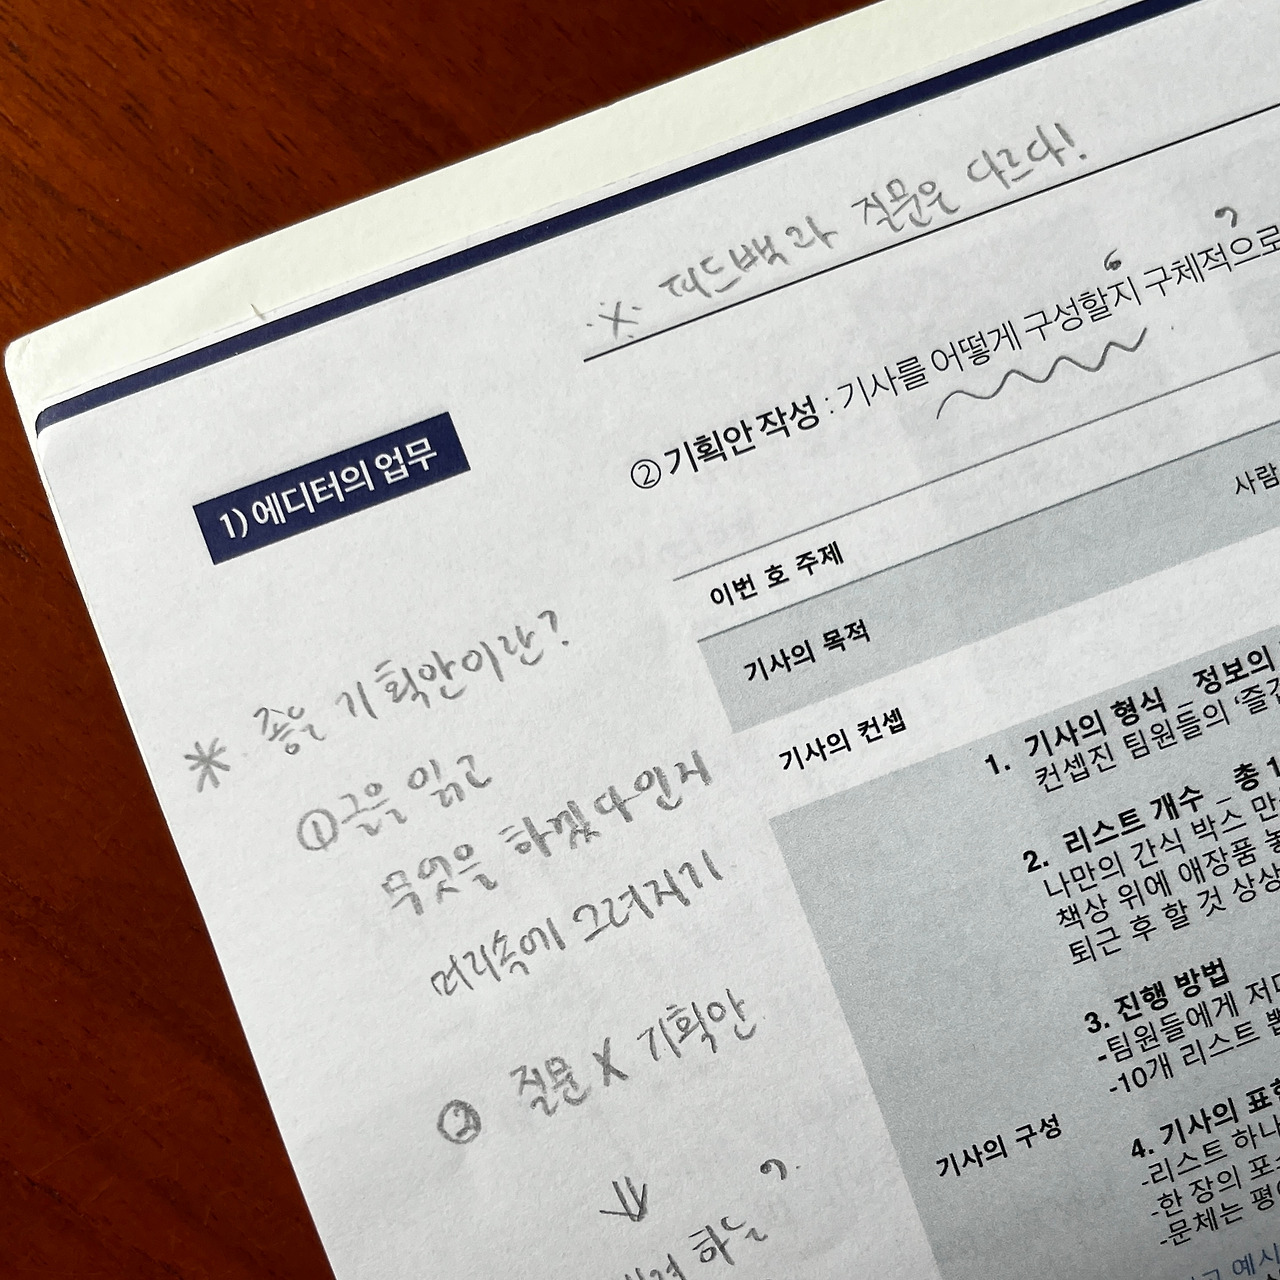 ※ 피드백과 질문은 다르다!
1) 에디터의 업무
② 기획안 작성 : 기사를 어떻게 구성할지 구체적으로
이번 호 주제
사람
기사의 목적
기사의 컨셉
* 좋은 기획안이란?
① 글을 읽고
무엇을 하겠다인지
머리속에 그려지기
② 질문 X 기획안
⇓
하는
1. 기사의 형식 _ 정보의
컨셉진 팀원들의 ‘즐
2. 리스트 개수 _ 총 1
나만의 간식 박스 만
책상 위에 애장품
퇴근 후 할 것 상상
3. 진행 방법
-팀원들에게
-10개 리스트
기사의 구성
4. 기사의 표
-리스트 하나
-한 장의
-문체는
예시